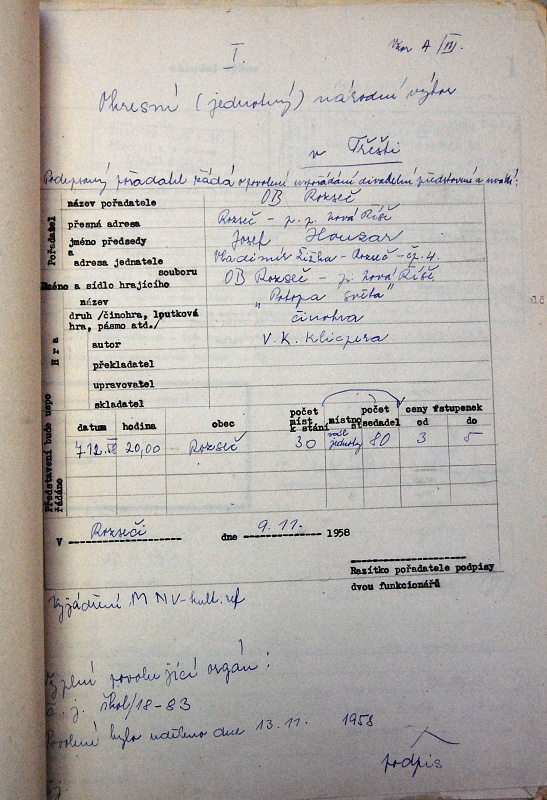 I. Vzor A/III.
Okresní (jednotný) národní výbor
v Třešti
Podepsaný pořadatel žádá o povolení uspořádání divadelní představení a uvádí:
Pořadatel
název pořadatele OB Rozseč
přesná adresa Rozseč - p. p. Nová Říše
jméno předsedy Josef Houzar
a
adresa jednatele Vladimír Žižka - Rozseč - čp. 4.
souboru
Jméno a sídlo hrajícího OB Rozseč - p. Nová Říše
Hra
název „Potopa světa"
druh /činohra, loutková
hra, pásmo atd./ činohra
autor V. K. Klicpera
překladatel
upravovatel
skladatel
Představení bude uspo
řádáno
datum hodina obec počet míst k stání místnost počet sedadel ceny vstupenek od do
7.12. 20,00 Rozseč 30 sál jednoty 80 3 5
V Rozseči dne 9. 11. 1958
Razítko pořadatele podpisy
dvou funkcionářů
Vyjádření MNV - kult. ref
Vyplní povolující orgán:
č. j. škol/18-83
Povolení bylo uděleno dne 13.11. 1958
podpis